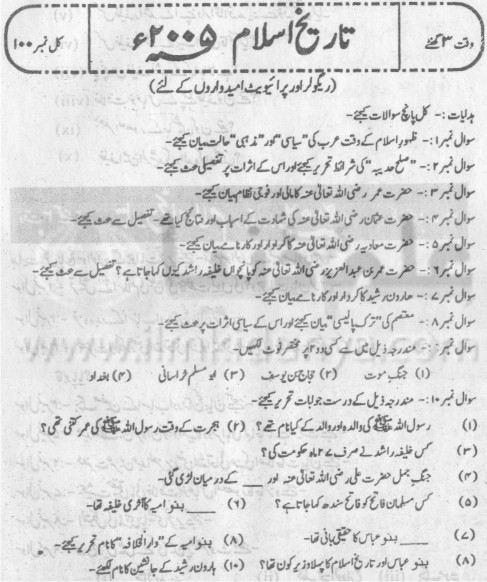 وقت ۳ گھنٹے
تاریخ اسلام ۲۰۰۵ء
کل نمبر ۱۰۰
(ریگولر اور پرائیویٹ امیدواروں کے لئے)
ہدایات :- کل پانچ سوالات کیجئے-
سوال نمبر ۱:- ظہورِ اسلام کے وقت عرب کی "سیاسی" اور "مذہبی" حالت بیان کیجئے-
سوال نمبر ۲:- "صلح حدیبیہ" کی شرائط تحریر کیجئے اور اس کے اثرات پر تفصیلی بحث کیجئے-
سوال نمبر ۳:- حضرت عمر رضی اللہ تعالیٰ عنہ کا مالی اور فوجی نظام بیان کیجئے-
سوال نمبر ۴:- حضرت عثمان رضی اللہ تعالیٰ عنہ کی شہادت کے اسباب اور نتائج کیا تھے- تفصیل سے بحث کیجئے-
سوال نمبر ۵:- حضرت معاویہ رضی اللہ تعالیٰ عنہ کا کردار اور کارنامے بیان کیجئے-
سوال نمبر ۶:- حضرت عمر بن عبدالعزیز رضی اللہ تعالیٰ عنہ کو پانچواں خلیفہ راشد کیوں کہا جاتا ہے؟ تفصیل سے بحث کیجئے-
سوال نمبر ۷:- ہارون رشید کا کردار اور کارنامے بیان کیجئے-
سوال نمبر ۸:- معتصم کی "ترک پالیسی" بیان کیجئے اور اس کے سیاسی اثرات پر بحث کیجئے-
سوال نمبر ۹:- مندرجہ ذیل میں سے کسی دو پر مختصر نوٹ لکھیں-
(۱) جنگِ موتہ (۲) حجاج بن یوسف (۳) ابو مسلم خراسانی (۴) بغداد
سوال نمبر ۱۰:- مندرجہ ذیل کے درست جوابات تحریر کیجئے-
(۱) رسول اللہ ﷺ کی والدہ اور والد کے کیا نام تھے؟ (۲) ہجرت کے وقت رسول اللہ ﷺ کی عمر کتنی تھی؟
(۳) کس خلیفہ راشد نے صرف ۲۷ ماہ حکومت کی؟
(۴) جنگِ جمل حضرت علی رضی اللہ تعالیٰ عنہ اور ____ کے درمیان لڑی گئی-
(۵) کس مسلمان فاتح کو فاتح سندھ کہا جاتا ہے؟ (۶) ____ بنو امیہ کا آخری خلیفہ تھا-
(۷) ____ بنو عباس کا حقیقی بانی تھا- (۸) بنو امیہ کے "دارالخلافہ" کا نام تحریر کیجئے-
(۸) بنو عباس اور تاریخ اسلام کا پہلا وزیر کون تھا؟ (۱۰) ہارون رشید کے جانشین کا نام لکھئے-